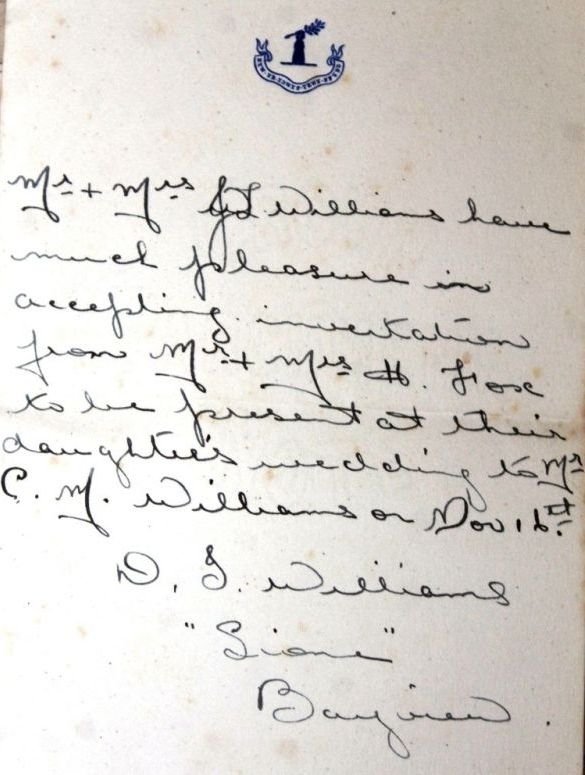 Mr + Mrs Williams have
much pleasure in
accepting invitation
from Mr + Mrs H. Fox
to be present at their
daughter's wedding to Mr
C. M. Williams on Nov.
D. J. Williams
Bayview.